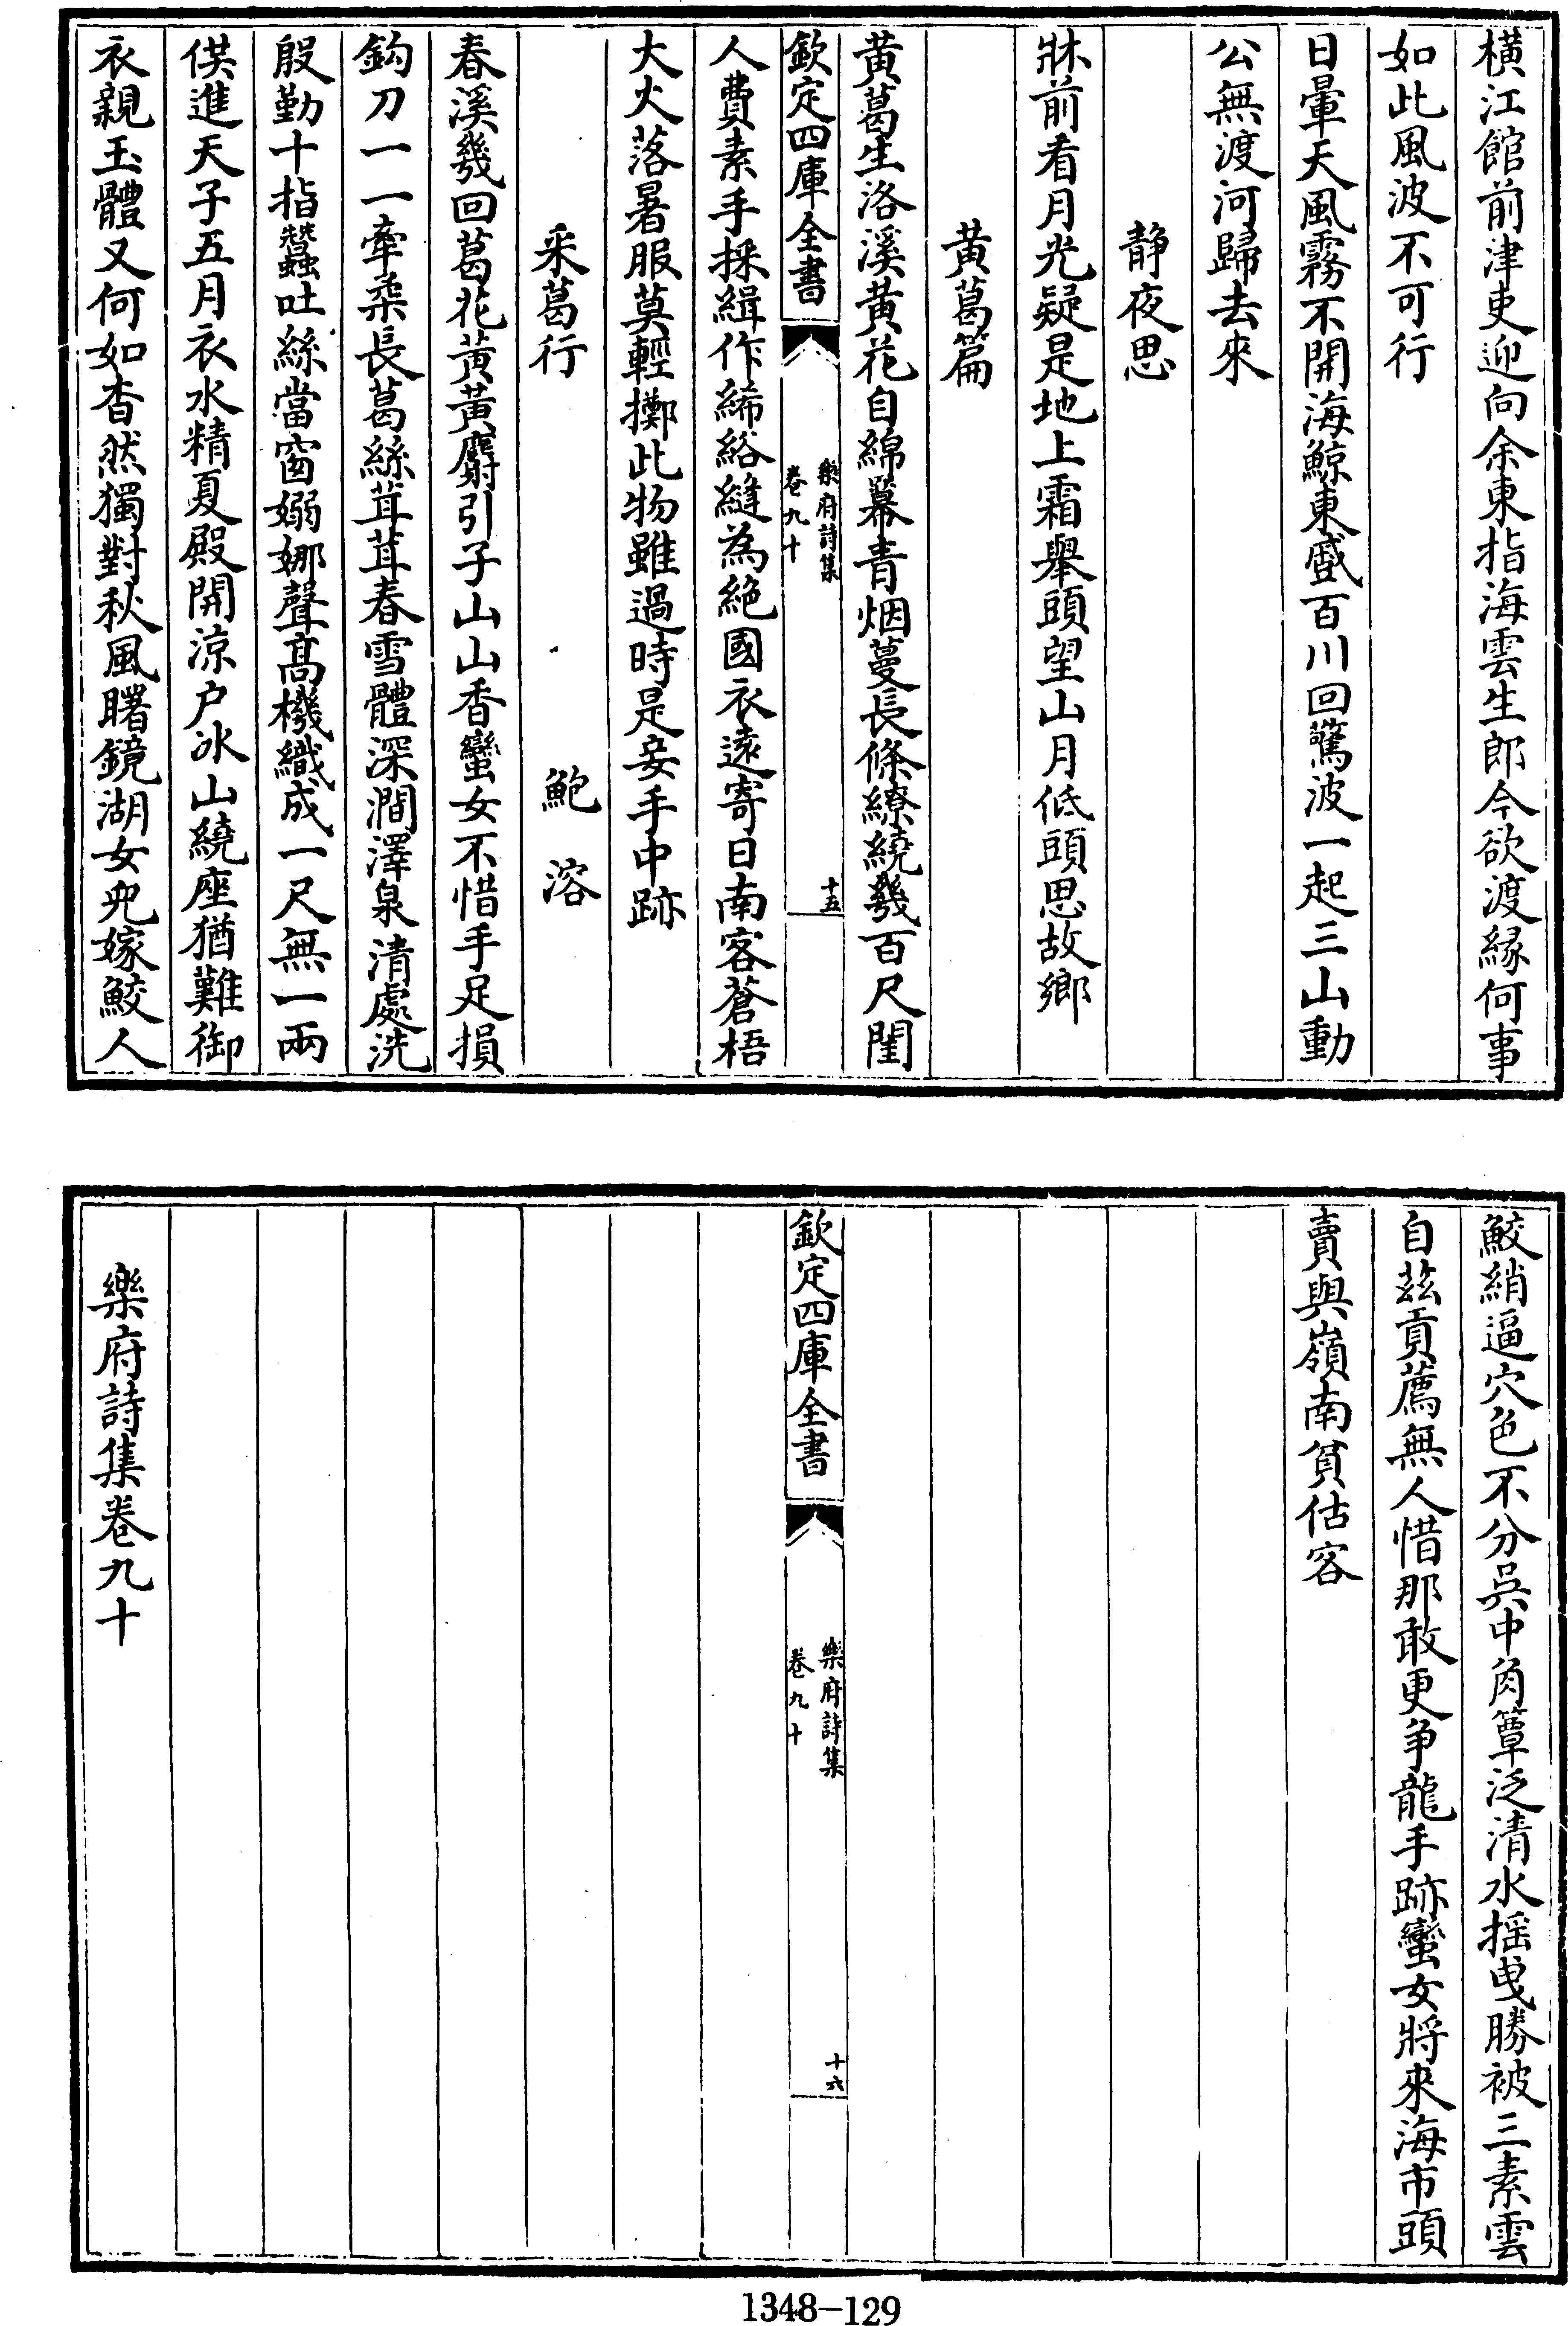 橫江館前津吏迎向余東指海雲生郎今欲渡緣何事
如此風波不可行
日暈天風霧不開海鯨東蹙百川回驚波一起三山動
公無渡河歸去來
靜夜思
牀前看月光疑是地上霜舉頭望山月低頭思故鄉
黃葛篇
黃葛生洛溪黃花自綿羃青烟蔓長條繚繞幾百尺閨
欽定四庫全書
樂府詩集
卷九十
十五
人費素手採緝作絺綌縫為絶國衣遠寄日南客蒼梧
大火落暑服莫輕擲此物雖過時是妾手中跡
采葛行
鮑溶
春溪幾回葛花黃黃麝引子山山香蠻女不惜手足損
鈎刀一一牽柔長葛絲茸茸春雪體深澗澤泉清處洗
殷勤十指蠶吐絲當窗嫋娜聲髙機織成一尺無一兩
供進天子五月衣水精夏殿開凉户冰山繞座猶難御
衣親玉體又何如杳然獨對秋風曙鏡湖女兒嫁鮫人
鮫綃逼穴色不分吳中角簟泛清水揺曵勝被三素雲
自茲貢薦無人惜那敢更争龍手跡蠻女將來海市頭
賣與嶺南貧估客
欽定四庫全書
樂府詩集
卷九十
十六
樂府詩集卷九十
1348-129